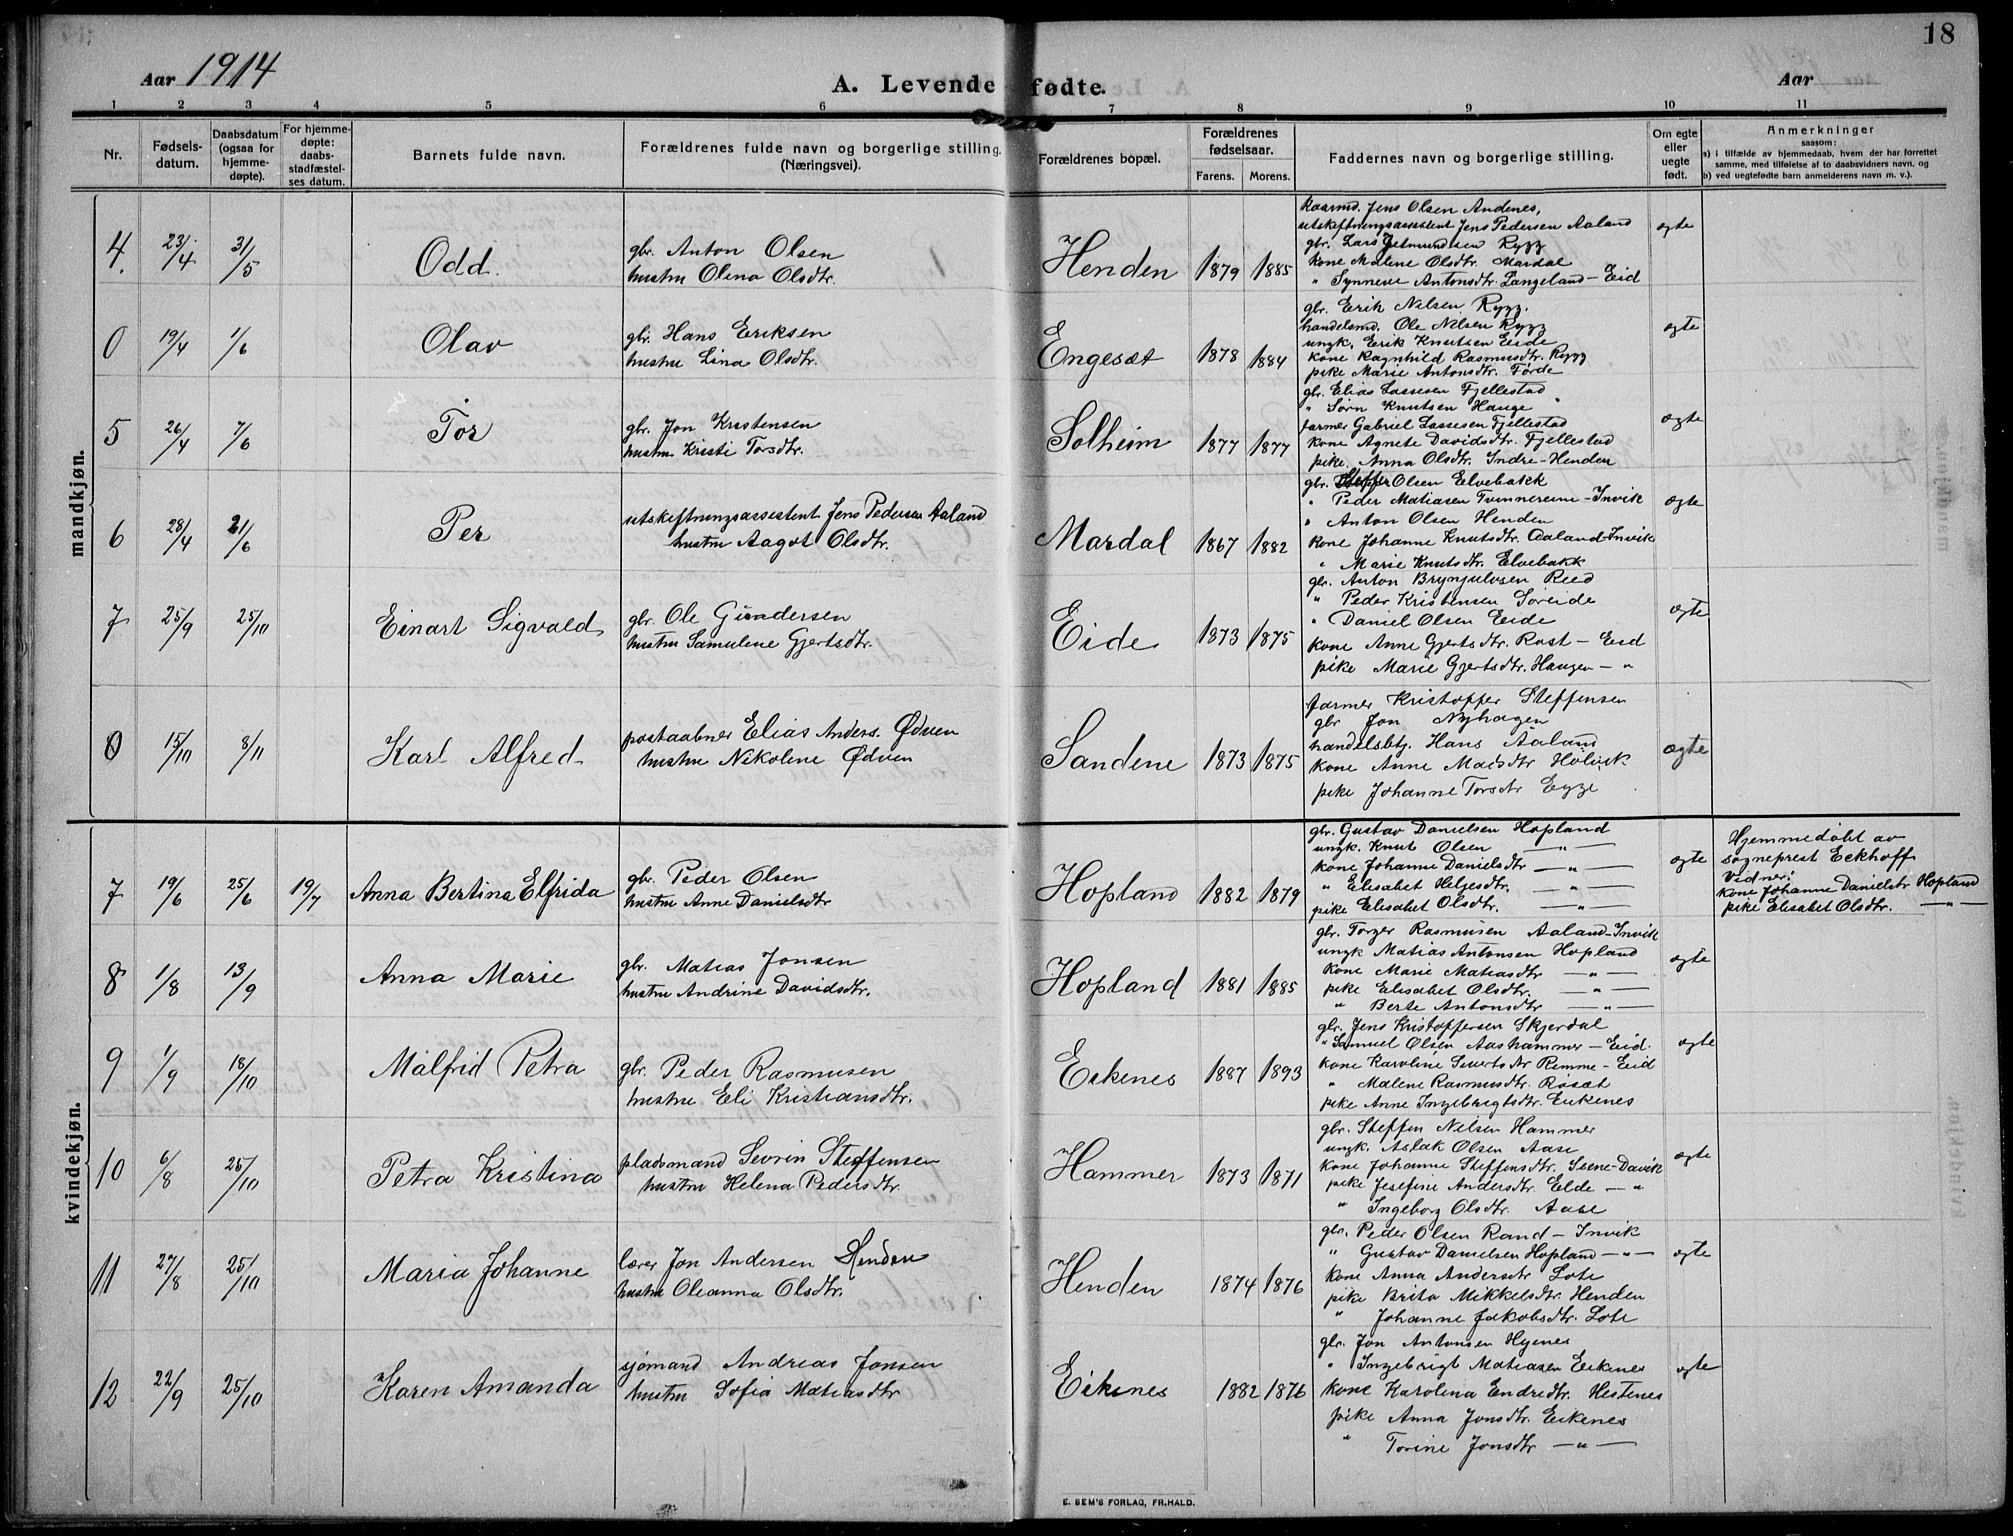 18
Aar 1914
A. Levende fødte.
Aar
1 2 3 4 5 6 7 8 9 10 11
Nr.
Fødsels-
datum.
Daabsdatum
(ogsaa for
hjemme-
døpte).
For hjemme-
døpte:
daabs-
stadfæstel-
ses datum.
Barnets fulde navn.
Forældrenes fulde navn og borgerlige stilling.
(Næringsvei).
Forældrenes bopæl.
Forældrenes
fødselsaar.
Farens. Morens.
Faddernes navn og borgerlige stilling.
Om egte
eller
uegte
født.
Anmerkninger
saasom:
a) i tilfælde av hjemmedaab, hvem der har forrettet
samme, med tilføielse af to daabsvidners navn, og
b) ved uegtefødte barn anmelderens navn m. v.).
mandkjøn.
4. 23/4 31/5 Odd.
gbr. Anton Olsen
hustru Olina Olsdtr.
Henden 1879 1885
Jens Olsen Andenes,
utskiftningsassistent Jens Pedersen Aaland
gbr. Lars Rygg
kone Malene Olsdtr. Mardal
" Synneve Antonsdtr. Langeland - Eid
egte
0 19/4 1/6 Olav
gbr. Hans Eriksen
hustru Lina Olsdtr.
Engesæt 1878 1884
gbr. Erik Nilsen Rygg.
handelsmd. Ole Nilsen Rygg
ungk. Erik Knutsen Eide
kone Ragnhild Rasmusdtr. Rygg
pike Marie Antonsdtr. Førde
egte
5 26/4 7/6 Tor
gbr. Jon Kristensen
hustru Kristi Torsdtr.
Solheim 1877 1877
gbr. Elias Lassesen Fjellestad
" Sørn Knutsen Hauge
farmer Gabriel Lassesen Fjellestad
kone Agnete Davidsdtr. Fjellestad
pike. Anna Olsdtr. Indre-Henden
egte
6 28/4 21/6 Per
utskiftningsassistent Jens Pedersen Aaland
hustru Aagot Olsdtr.
Mardal 1867 1882
gbr. Olsen Elvebakk
" Peder Matiasen Tvinnereim - Invik
" Anton Olsen Henden
kone Johanne Knutsdtr. Aaland-Invik
" Marie Knutsdtr. Elvebakk
egte
7 25/9 25/10 Einart Sigvald
gbr. Ole Gundersen
hustru Samulene Gjertsdtr.
Eide 1873 1875
gbr. Anton Brynjulvsen Reed
" Peder Kristensen Søreide
" Daniel Olsen Eide
kone Anne Gjertsdtr. Rost - Eid
pike Marie Gjertsdtr. Haugen - "
egte
0 15/10 8/11 Karl Alfred
postaabner Elias Anders. Ødven
hustru Nikoline Ødven
Sandene 1873 1875
farmer Kristoffer Steffensen
gbr Jon Nyhagen
handelsbtj. Hans Aaland
kone Anne Madsdtr Holvik
pike Johanne Torsdtr Rygg
egte
kvindekjøn.
7 19/6 25/6 19/7 Anna Bertina Elfrida
gbr. Peder Olsen
hustru Anne Danielsdtr
Hopland 1882 1879
gbr. Gustav Danielsen Hopland
ungk. Knut Olsen — " —
kone Johanne Danielsdtr — " —
" Elisabet Helgesdtr. — " —
pike Elisabet Olsdtr. — " —
egte
Hjemmedøbt av
sogneprest Eckhoff
Vidner:
kone Johanne Danielsdtr Hopland
pike Elisabet Olsdtr. — " —
8 1/8 13/9 Anna Marie
gbr. Matias Jonsen
hustru Andrine Davidsdtr.
Hopland 1881 1885
gbr. Torger Rasmusen Aaland-Invik
ungk Matias Antonsen Hopland
kone Marie Matiasdtr — " —
pike Elisabet Olsdtr. — " —
" Berte Antonsdtr — " —
egte
9 1/9 18/10 Målfrid Petra
gbr. Peder Rasmusen
hustru Eli Kristiansdtr.
Eikenes 1887 1893
gbr. Jens Kristoffersen Skjerdal
" Samuel Olsen Aashammer - Eid.
kone Karoline Sivertsdtr Remme - Eid
" Malene Rasmusdtr. Rosæt
pike Anne Ingebrigtsdtr. Eikenes
egte
10 6/8 25/10 Petra Kristina
pladsmand Sevrin Steffensen
hustru Helena Pedersdtr.
Hammer 1873 1871
gbr. Steffen Nilsen Hammer
ungk. Aslak Olsen Aase
kone Johanne Steffensdtr. Seene-Davik
pike Josefine Andersdtr. Elde - "
" Ingeborg Olsdtr. Aase
egte
11 27/8 25/10 Maria Johanne
lærer Jon Andersen Henden
hustru Oleanna Olsdtr.
Henden 1874 1876
gbr. Peder Olsen Rand - Invik
" Gustav Danielsen Hopland — " —
kone Anna Andersdtr Lote
pike Brita Mikkelsdtr. Henden
" Johanne Jakobsdtr. Lote
egte
12 22/9 25/10 Karen Amanda
sjømand Andreas Jonsen
hustru Sofia Matiasdtr
Eikenes 1882 1876
gbr. Jon Antonsen Hyenes
" Ingebrigt Matiasen Eikenes
kone Karolina Endredtr. Hestenes
pike Anna Jonsdtr. Eikenes
" Torine Jonsdtr — " —
egte
E. SEM'S FORLAG, FR.HALD.